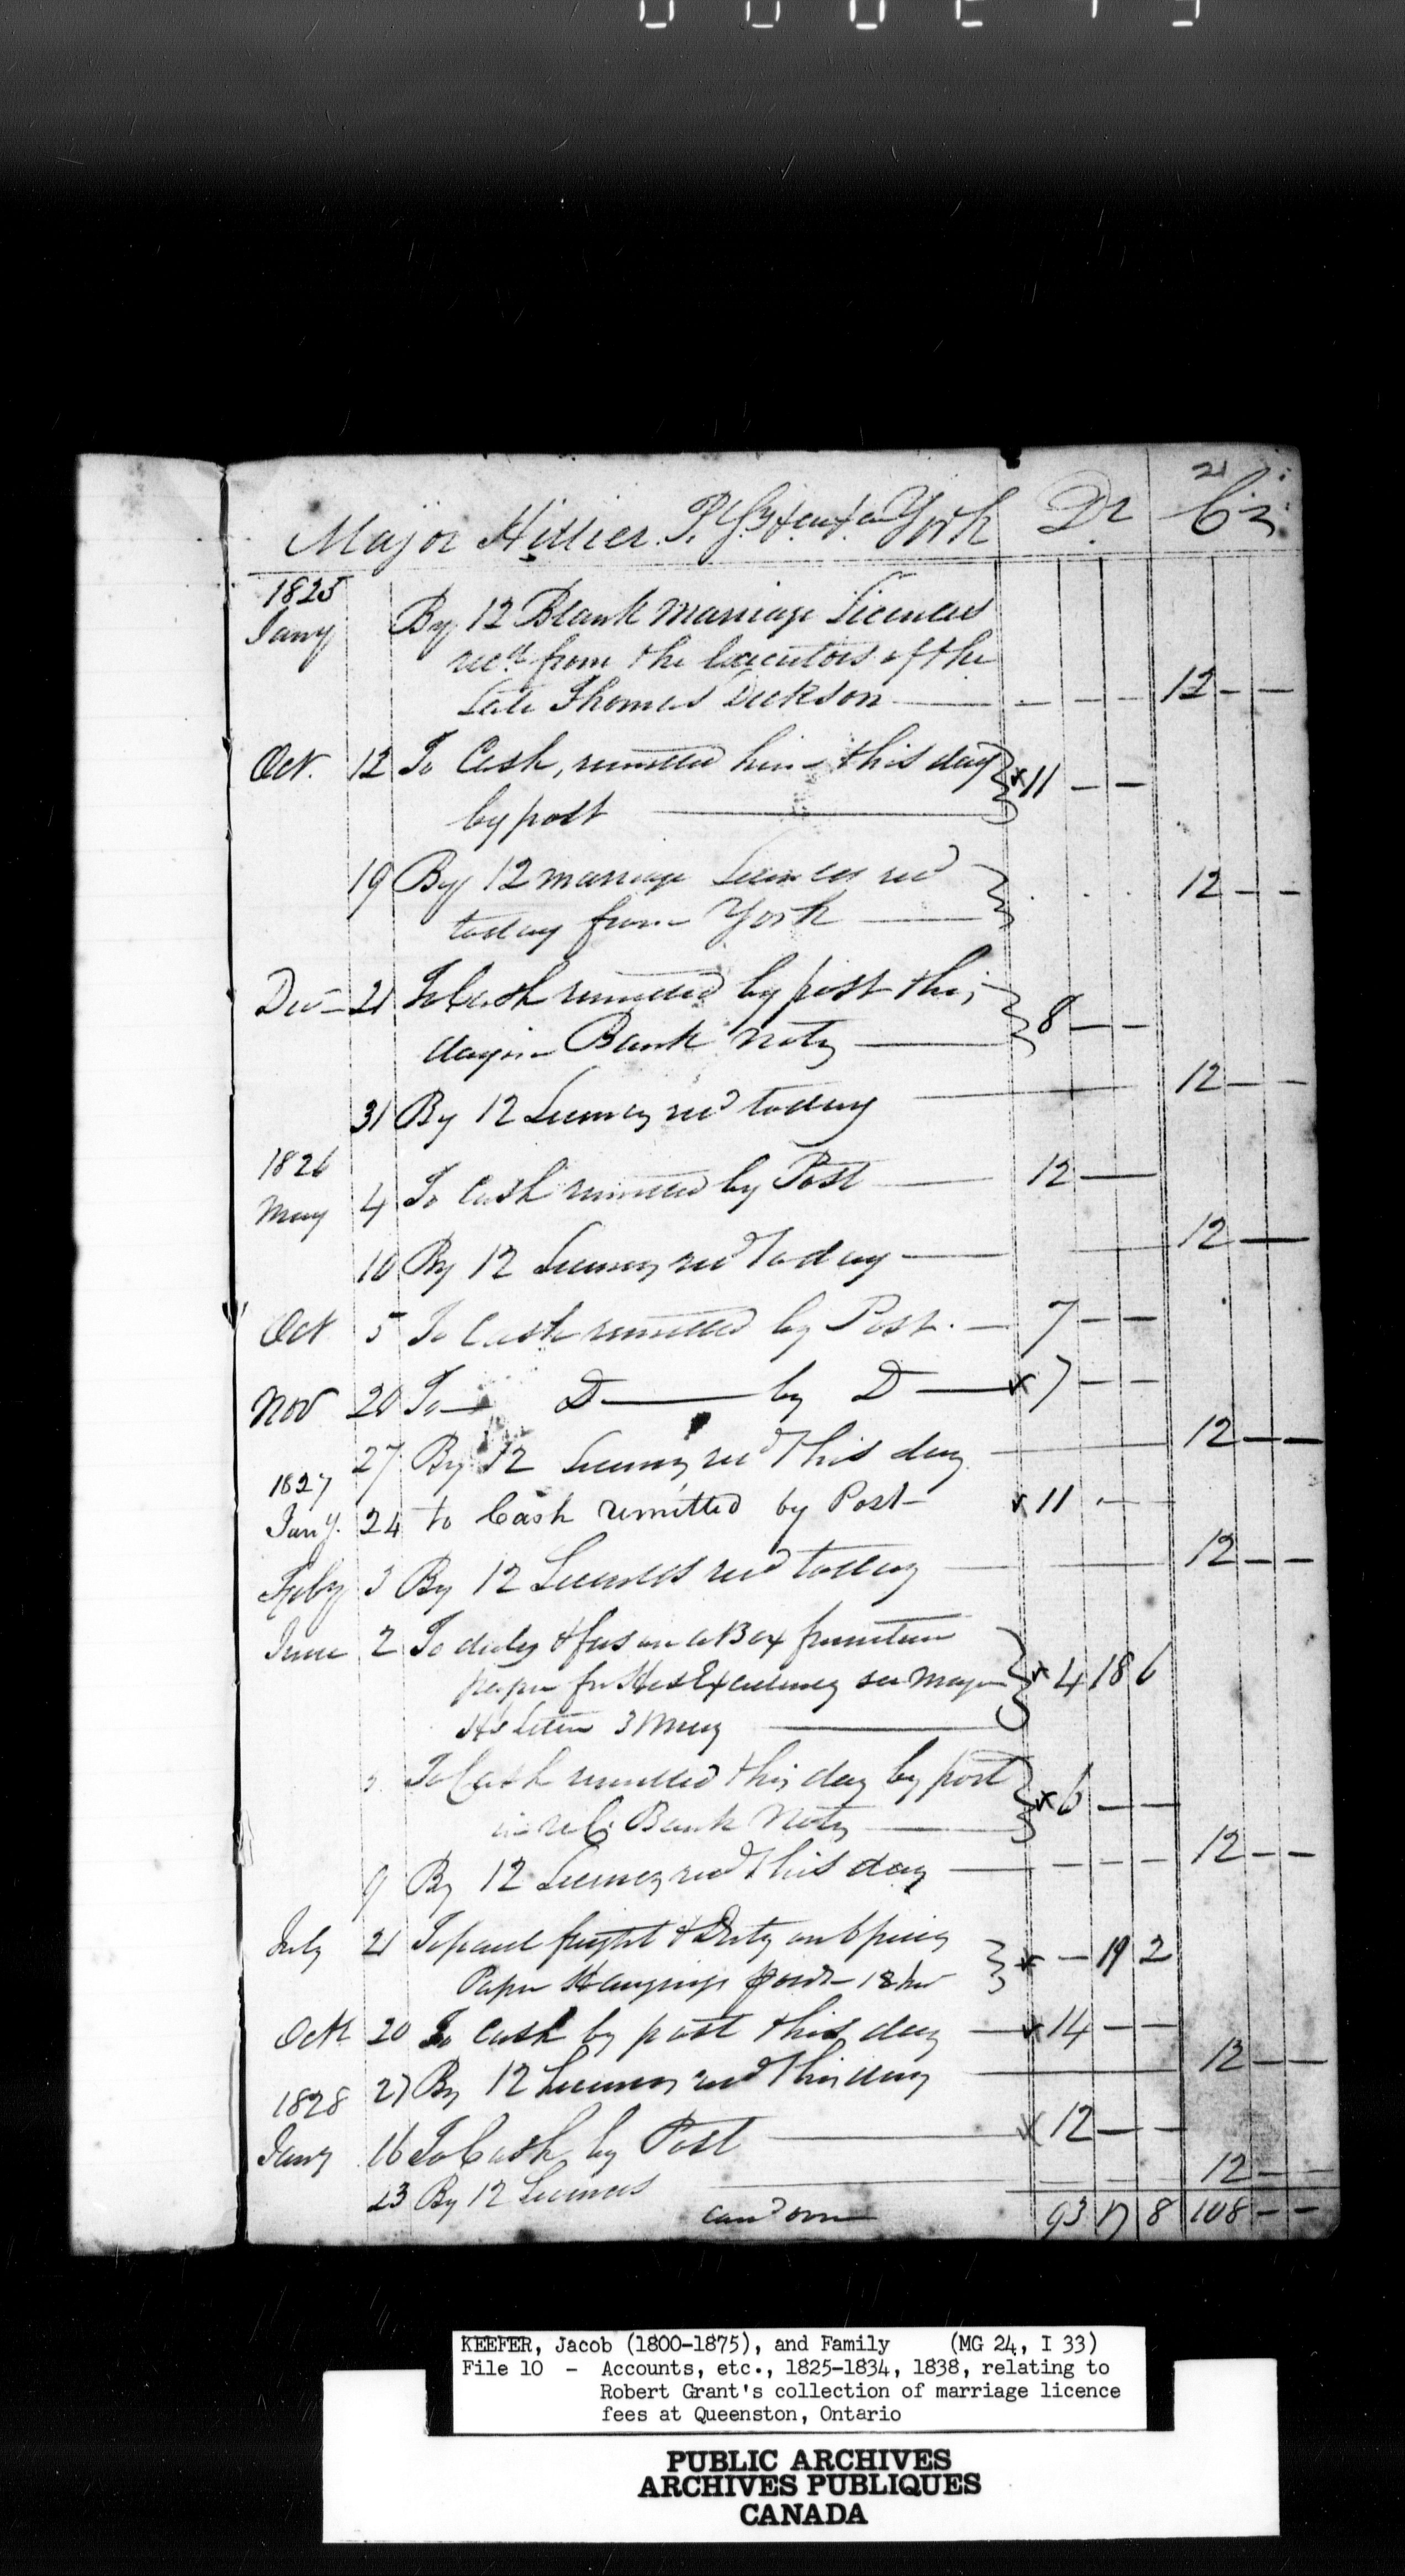 2
Major Hillier. P. York Dr Cr
1825
Jany By 12 Blank Marriage Licences
recd from the Executors of the
Late Thomas Dickson — — — — 12 — —
Oct. 12 To Cash, remitted him this day
by post — x 11 — —
19 By 12 marriage Licences recd
today from York — 12 — —
Dec — 21 To Cash remitted by post this
day in Bank notes — 8 — —
31 By 12 Licences recd today — 12 — —
1826
May 4 To Cash remitted by Post — 12 —
10 By 12 Licences recd today — 12 —
Oct 5 To Cash remitted by Post. — 7 — —
Nov 20 To — Do — by Do — x 7 — —
27 By 12 Licences recd this day — 12 — —
1827
Jany. 24 to Cash remitted by Post — x 11 — —
Feby 3 By 12 Licences recd today — 12 — —
June 2 To duty & fees on a Box furniture
paper for His Excellency see Major
Hs Letter 3 May — x 4 18 6
To Cash remitted this day by post
in Bank Notes — x 6 — —
9 By 12 Licences recd this day — — — — 12 — —
July 21 To paid freight & Duty on 6 pieces
Paper Hangings x — 19 2
Octr 20 To Cash by post this day — x 14 — —
27 By 12 Licences recd this day — 12 — —
1828
Jany 16 To Cash by Post — x 12 — —
23 By 12 Licences — 12 — —
card over 93 17 8 108 — —
KEEFER, Jacob (1800-1875), and Family (MG 24, I 33)
File 10 - Accounts, etc., 1825-1834, 1838, relating to
Robert Grant's collection of marriage licence
fees at Queenston, Ontario
PUBLIC ARCHIVES
ARCHIVES PUBLIQUES
CANADA